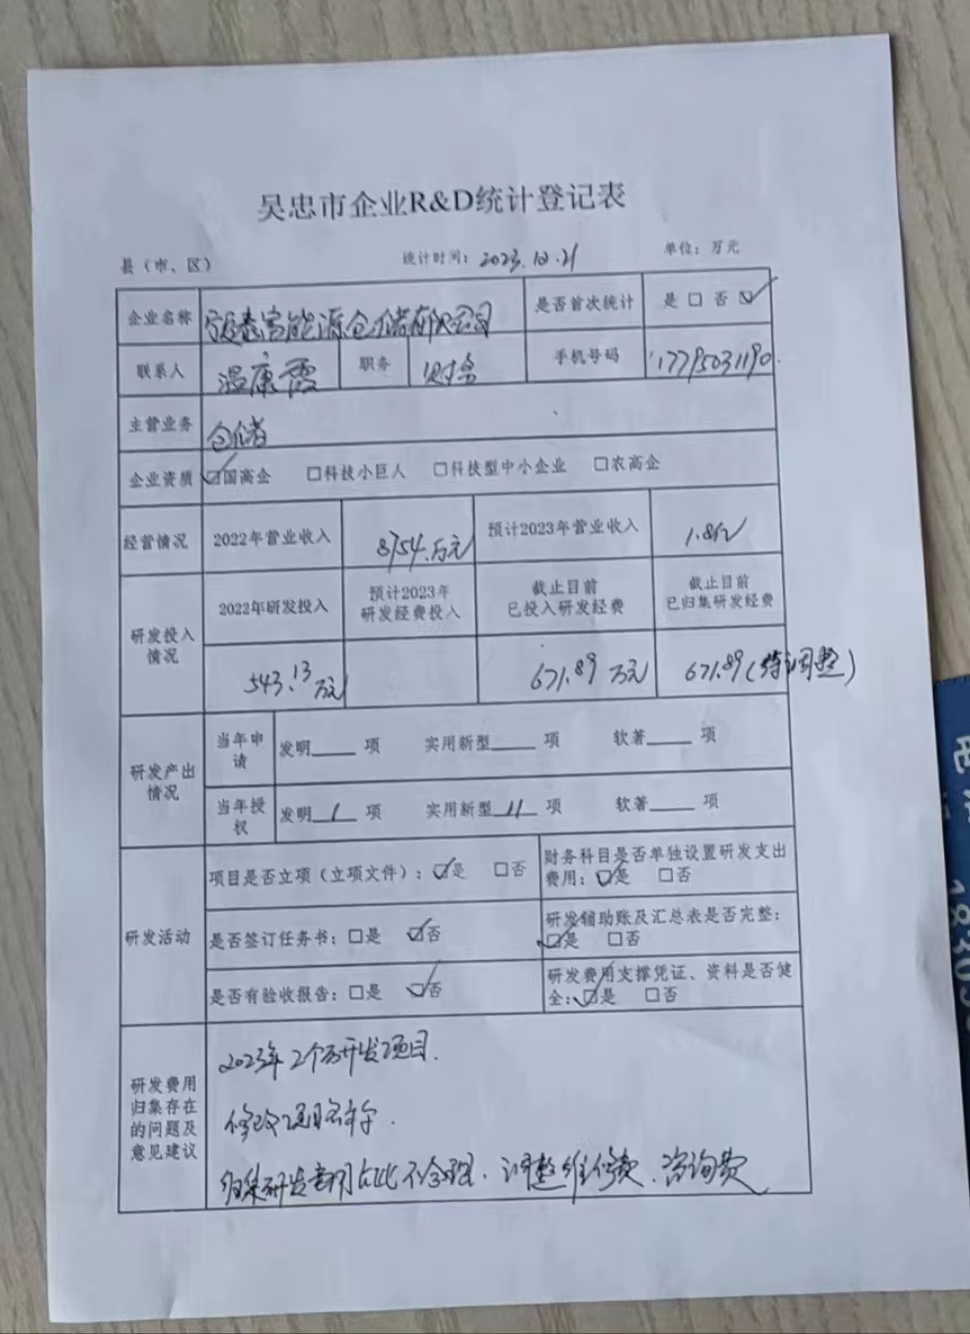 吴忠市企业R&D统计登记表
县（市、区） 统计时间：2023.12.21 单位：万元
企业名称 能源仓储有限公司 是否首次统计 是□ 否☑
联系人 温康霞 职务 财务 手机号码 17795031190
主营业务 仓储
企业资质 ☑国高企 □科技小巨人 □科技型中小企业 □农高企
经营情况 2022年营业收入 8754.万元 预计2023年营业收入 1.8亿
研发投入情况 2022年研发投入 预计2023年研发经费投入 截止目前已投入研发经费 截止目前已归集研发经费
543.13万元 671.89万元 671.89(待调整)
研发产出情况 当年申请 发明____项 实用新型____项 软著____项
当年授权 发明 1 项 实用新型 11 项 软著____项
研发活动 项目是否立项（立项文件）：☑是 □否 财务科目是否单独设置研发支出费用：☑是 □否
是否签订任务书：□是 ☑否 研发辅助账及汇总表是否完整：☑是 □否
是否有验收报告：□是 ☑否 研发费用支撑凭证、资料是否健全：☑是 □否
研发费用归集存在的问题及意见建议
2023年2个研发项目.
修改项目名称.
归集研发费用占比不合理.调整维修费.咨询费